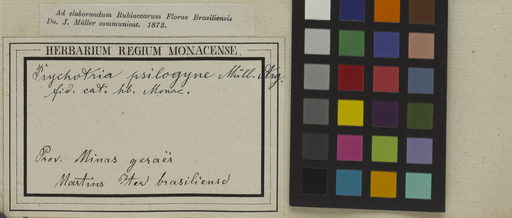 Ad elaborandum Rubiacearum Florae Brasiliensis
Do. J. Müller communicat. 1873.
HERBARIUM REGIUM MONACENSE.
Psychotria psilogyne Müll. Arg.
fid. cat. hb. Monac.
Prov. Minas geraës
Martius Iter brasiliense